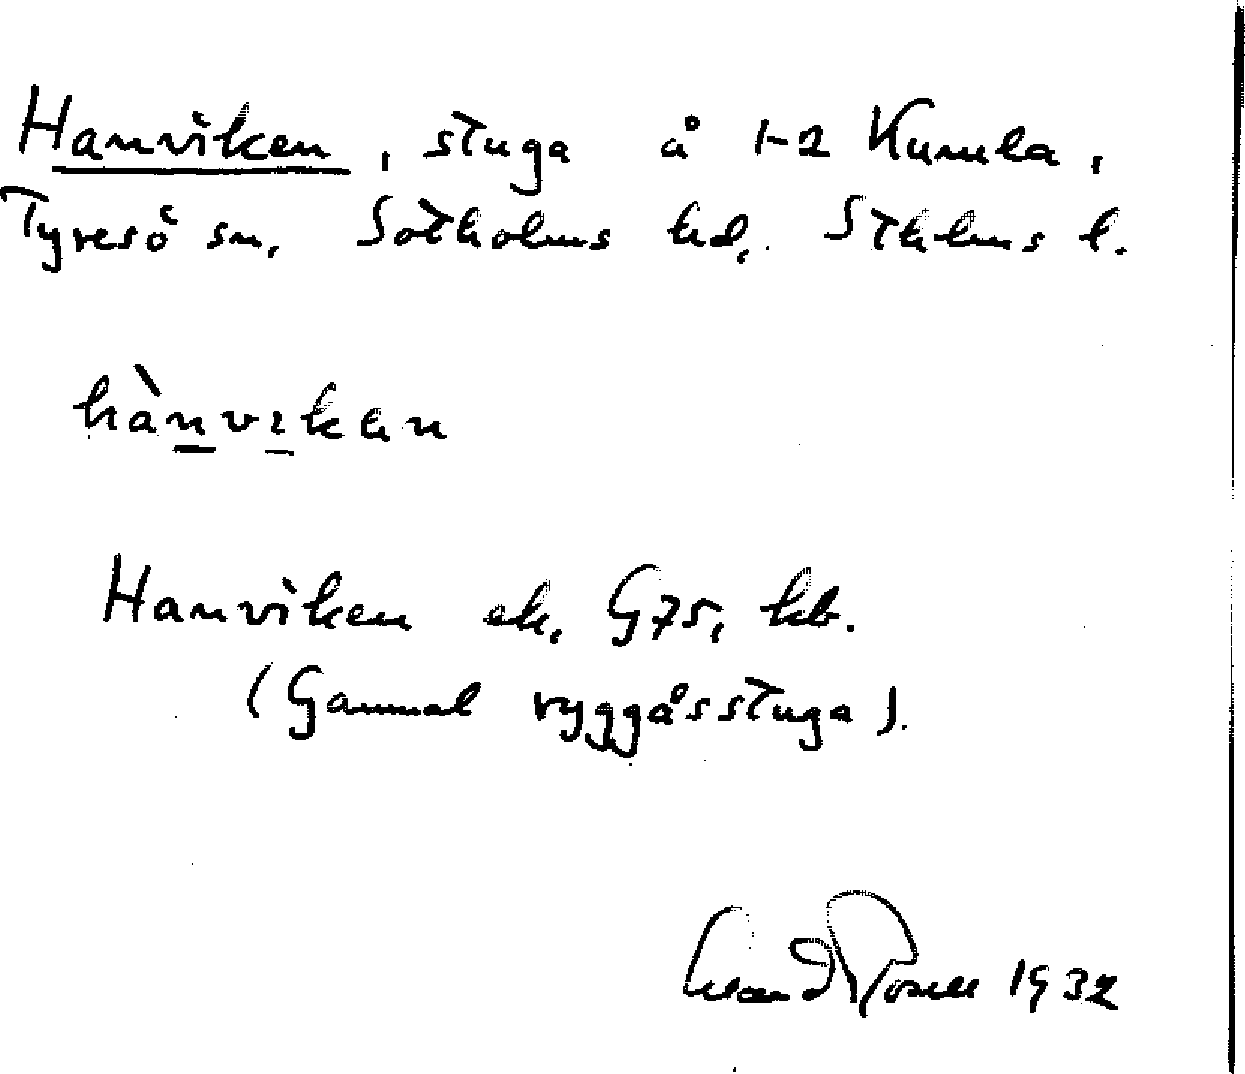 Hanviken, stuga å 1-2 Kumla,
Tyresö sn, Sotholms hd, Sthlms l.
hànvikan
Hanviken ek, G75, kb.
(Gammal ryggåsstuga).
1932